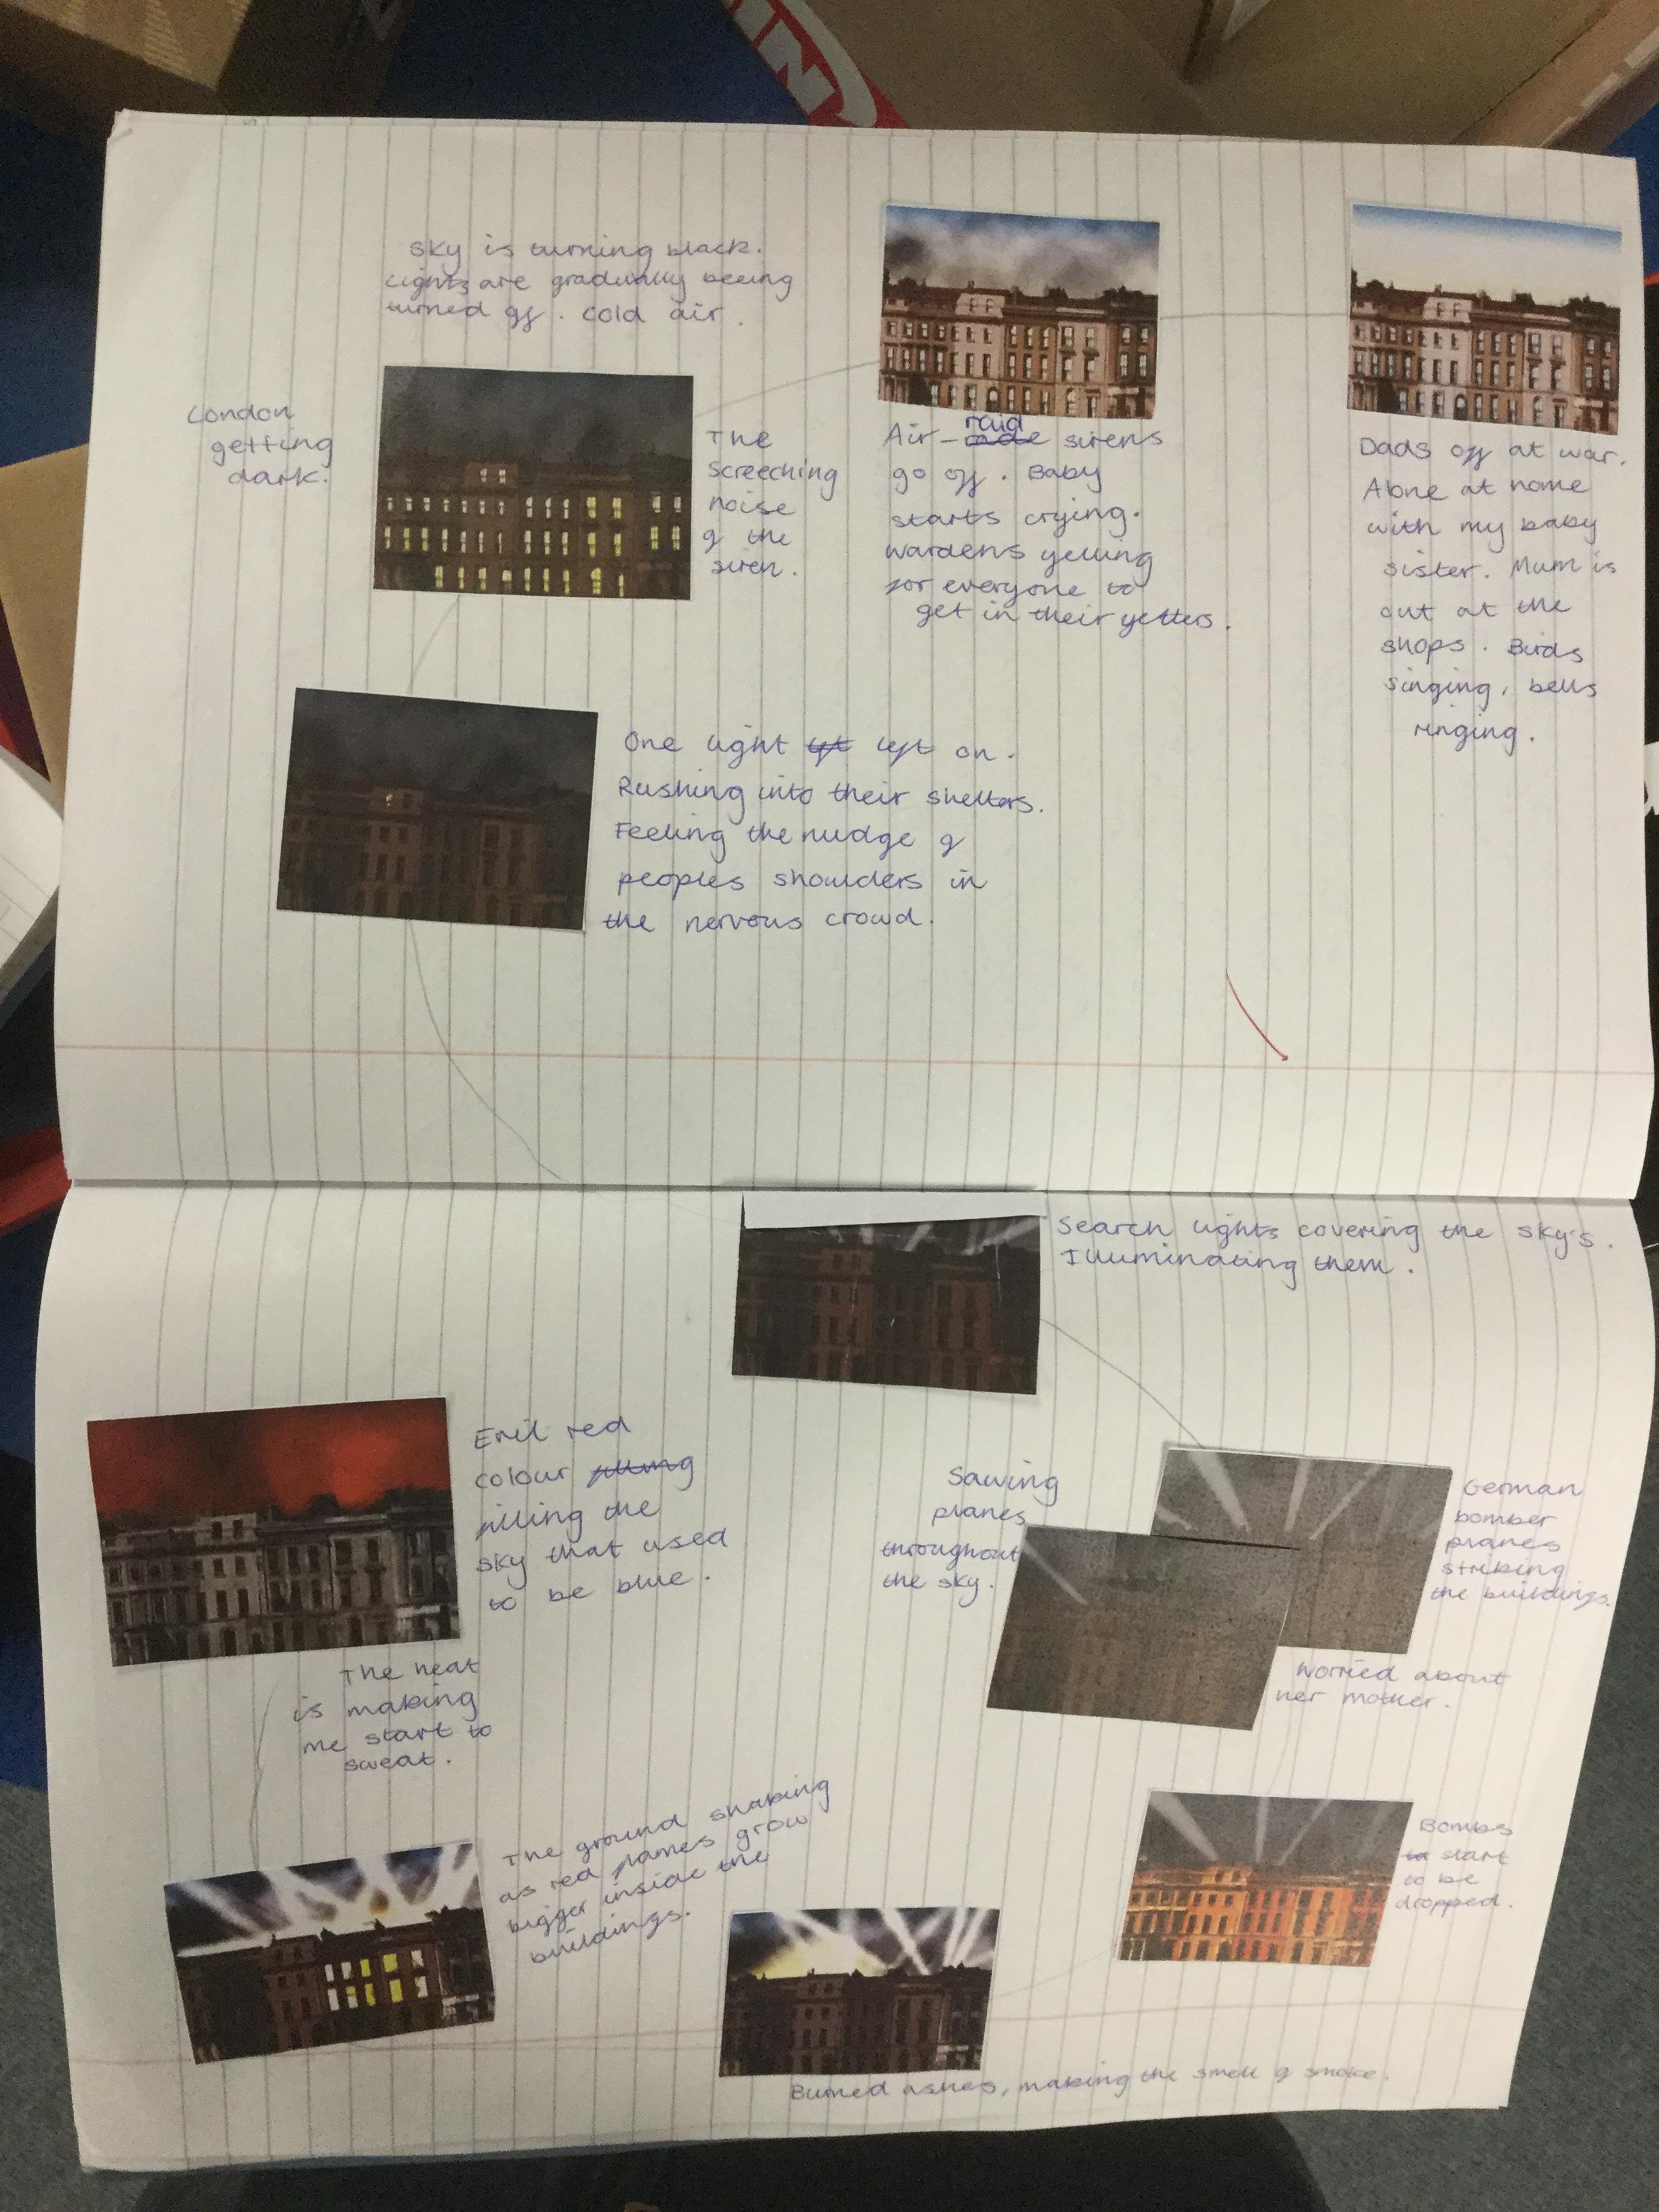 Dads off at war.
Alone at home
with my baby
sister. Mum is
out at the
shops. Birds
singing, bells
ringing.
raid
Air- sirens
go off. Baby
starts crying.
wardens yelling
for everyone to
get in their
sky is turning black.
Lights are gradually beeing
turned off. cold air.
London
getting
dark.
The
screeching
noise
of the
siren.
One light left on.
Rushing into their shelters.
Feeling the nudge of
peoples shoulders in
the nervous crowd.
Search lights covering the sky's.
Illuminating them.
German
bomber
planes
striking
the buildings.
Sawing
planes
throughout
the sky.
Worried about
her mother.
Bombs
to start
to be
dropped.
Burned ashes, making the smell of smoke.
The ground shaking
as red flames grow
bigger inside the
buildings.
Evil red
colour filling
filling the
sky that used
to be blue.
The heat
is making
me start to
sweat.